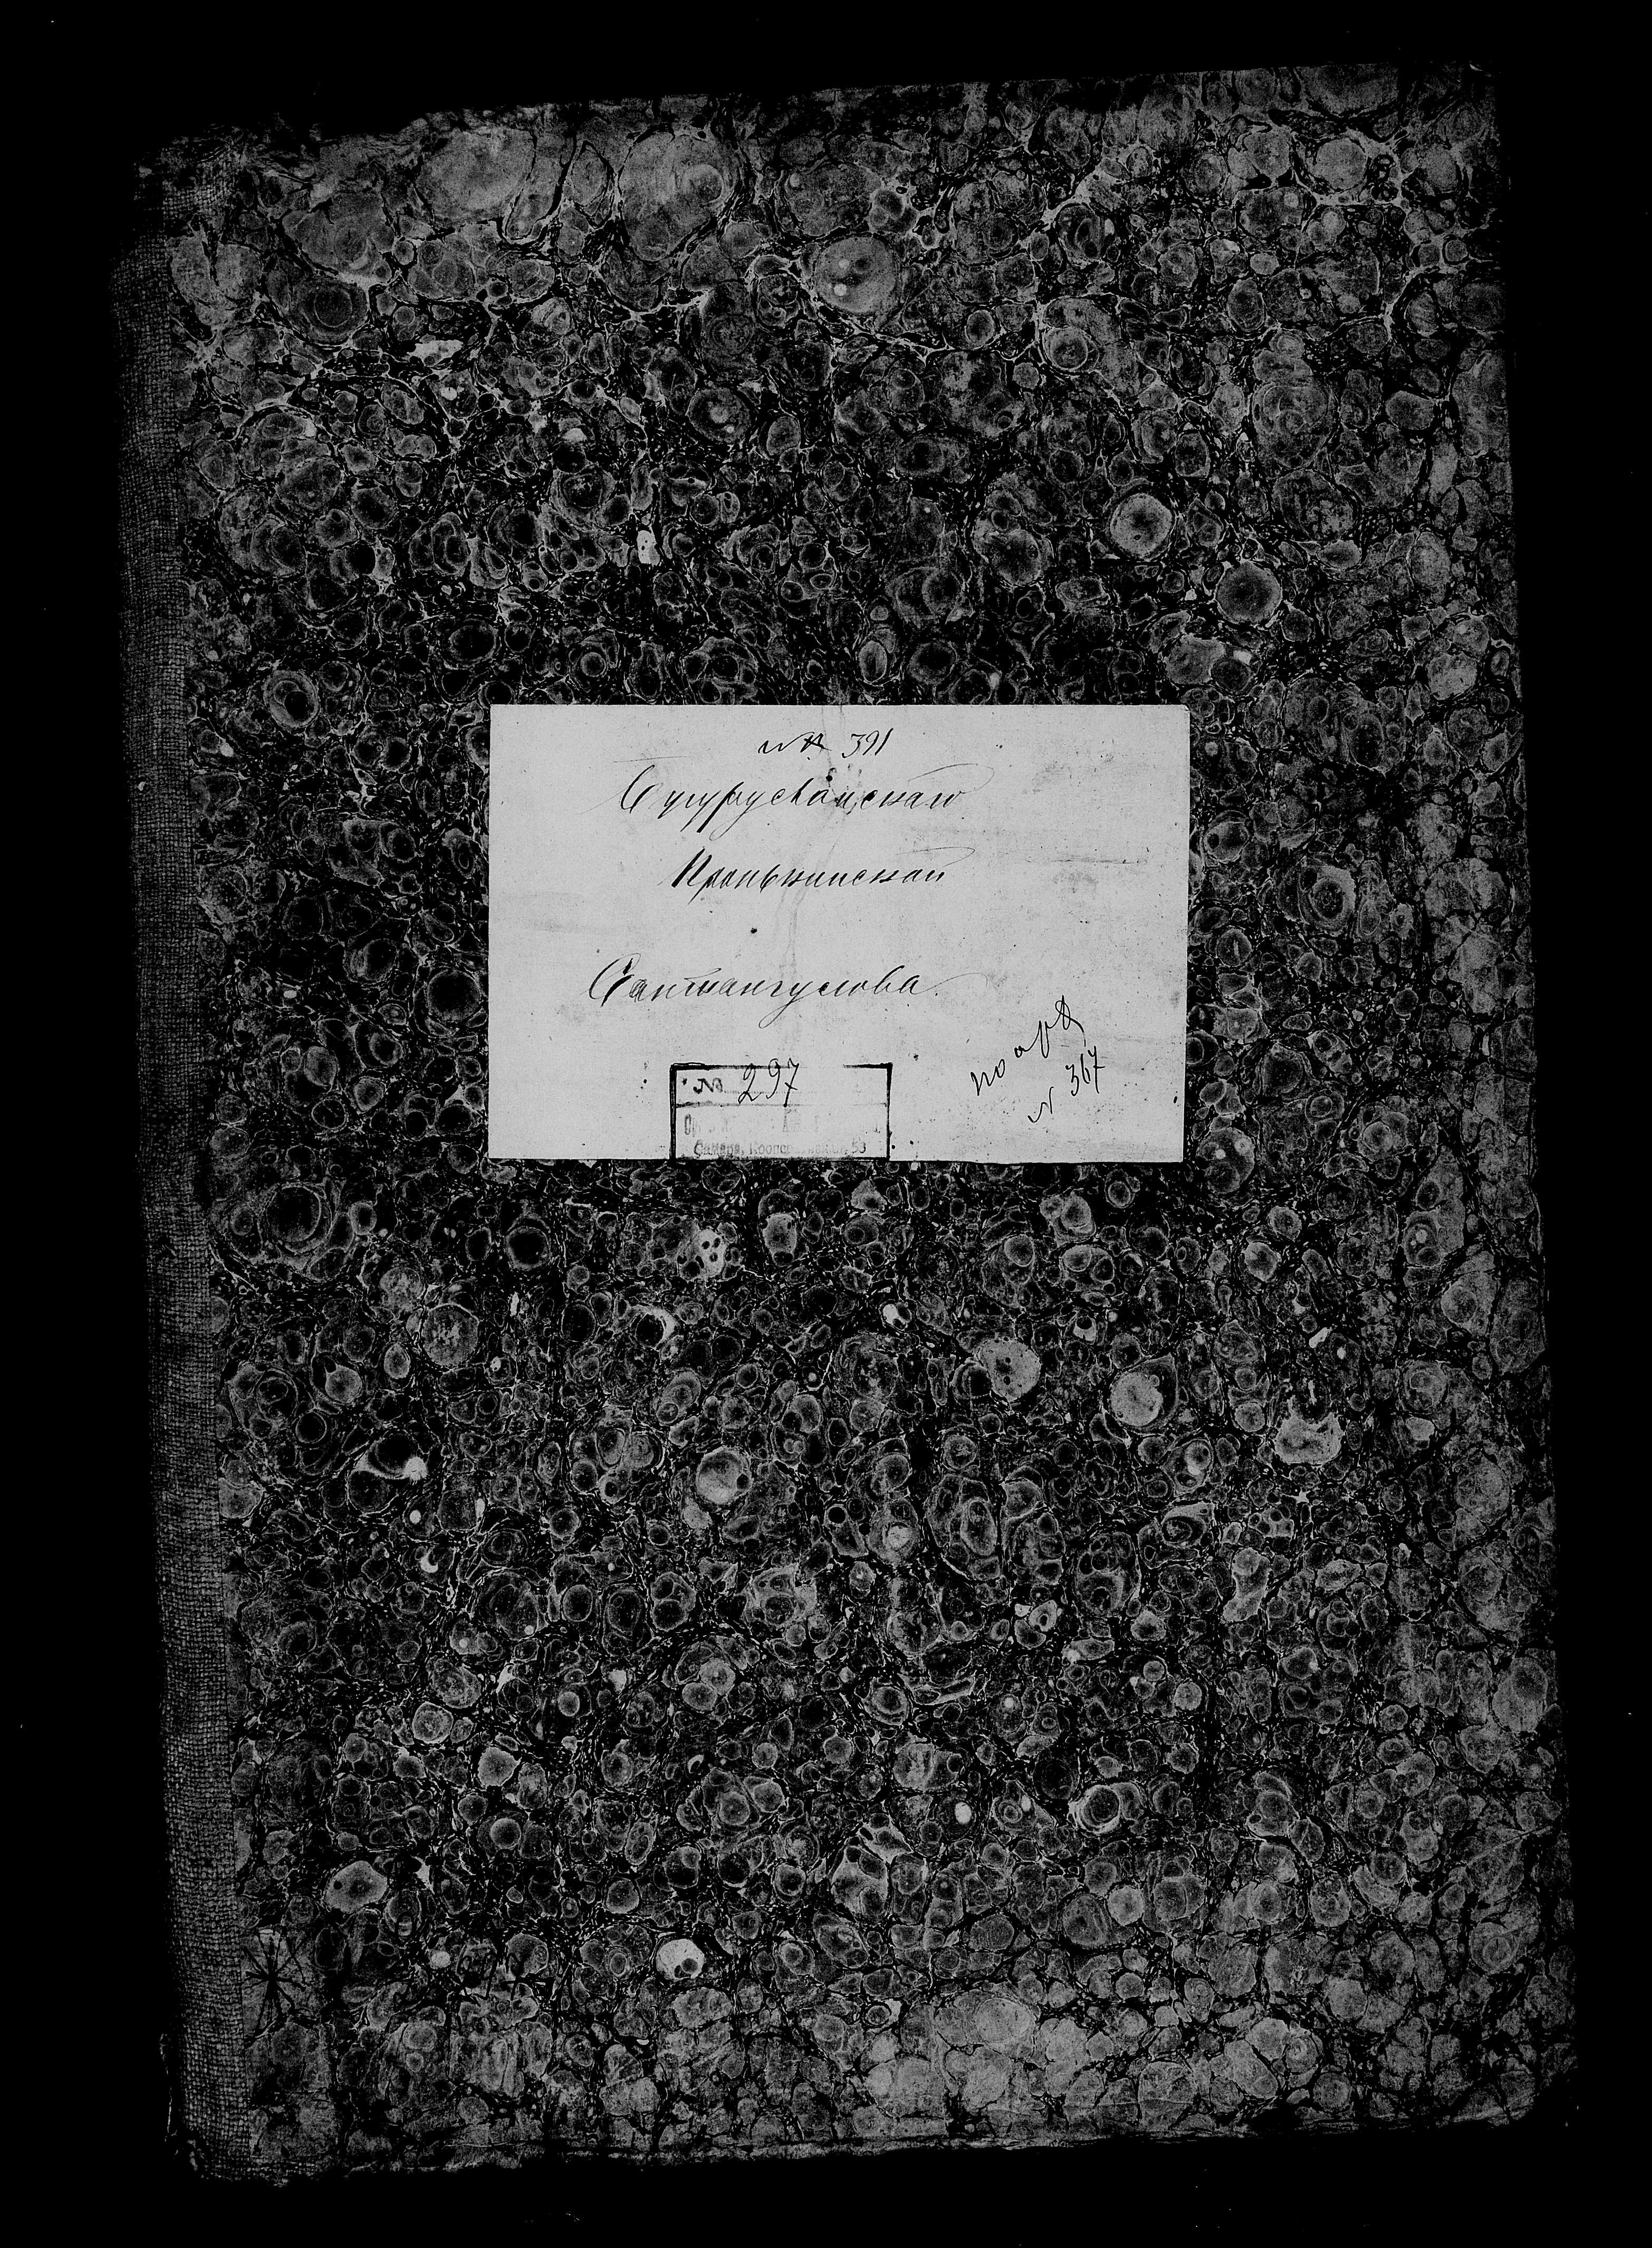 № 391
Бугурусланскаго
Проньнинской
Сантангулова
№ 297
Самара, Кооперативная, 53
по арх
№ 367